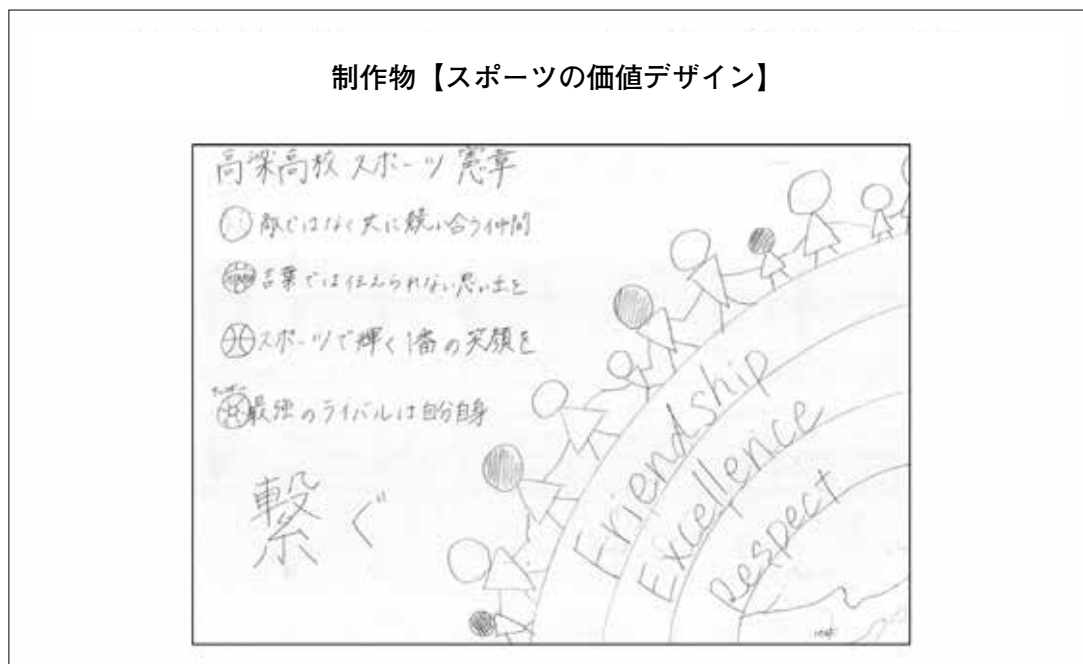 制作物【スポーツの価値デザイン】
高深高校 スポーツ 憲章
敵ではなく共に競い合う仲間
言葉では伝えられない思いを
スポーツで輝く1番の笑顔を
最強のライバルは自分自身
繋ぐ
Friendship
Excellence
Respect